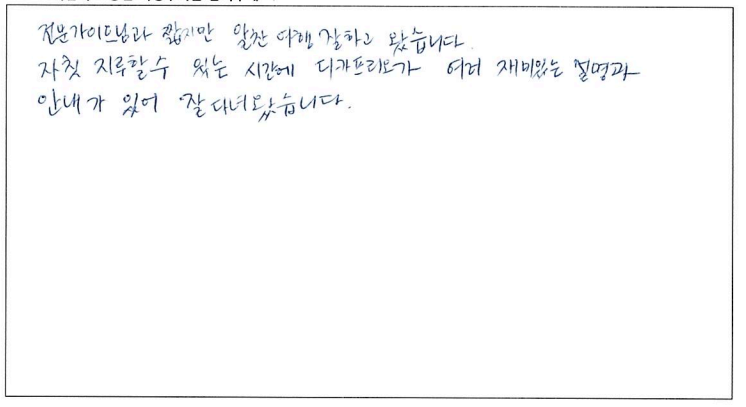 전문가이드님과 짧지만 알찬 여행 잘하고 왔습니다.
자칫 지루할 수 있는 시간에 디카프리오가 여러 재미있는 설명과
안내가 있어 잘 다녀왔습니다.